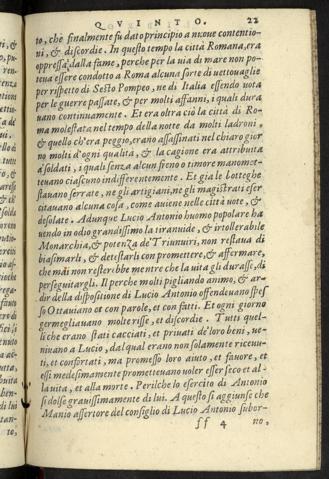 QVINTO. 22
to, che finalmente fu dato principio a nuoue contentio
ni, & discordie. In questo tempo la città Romana, era
oppressa dalla fame, perche per la uia di mare non po-
teua essere condotto a Roma alcuna sorte di uettouaglie
per rispetto di Sesto Pompeo, ne di Italia essendo uota
per le guerre passate, & per molti affanni, i quali dura
uano continuamente. Et era oltra ciò la città di Ro-
ma molestata nel tempo della notte da molti ladroni,
& quello ch'era peggio, erano assassinati nel chiaro gior
no molti d'ogni qualità, & la cagione era attribuita
a'soldati, i quali senza alcun freno o timore manomet-
teuano ciascuno indifferentemente. Et gia le botteghe
stauano serrate, ne gli artigiani, ne gli magistrati eser
citauano alcuna cosa, come auiene nelle città uote, &
desolate. Adunque Lucio Antonio huomo popolare ha
uendo in odio grandissimo la tirannide, & irtollerabile
Monarchia, & potenza de'Triunuiri, non restaua di
biasimarli, & detestarli con promettere, & affermare,
che mai non resterebbe mentre che la uita gli durasse, di
perseguitargli. Il perche molti pigliando animo, & ar-
dir della dispositione di Lucio Antonio offendeuano spes
so Ottauiano et con parole, et con fatti. Et ogni giorno
germogliauano molte risse, et discordie. Tutti quel-
li che erano stati cacciati, et priuati de'loro beni, ue-
niuano a Lucio, dal qual erano non solamente riceuu-
ti, et confortati, ma promesso loro aiuto, et fauore, et
essi medesimamente prometteuano uoler esser seco et al-
la uita, et alla morte. Perilche lo esercito di Antonio
si dolse grauissimamente di lui. A questo si aggiunse che
Manio assertore del consiglio di Lucio Antonio subor-
ff 4 no,